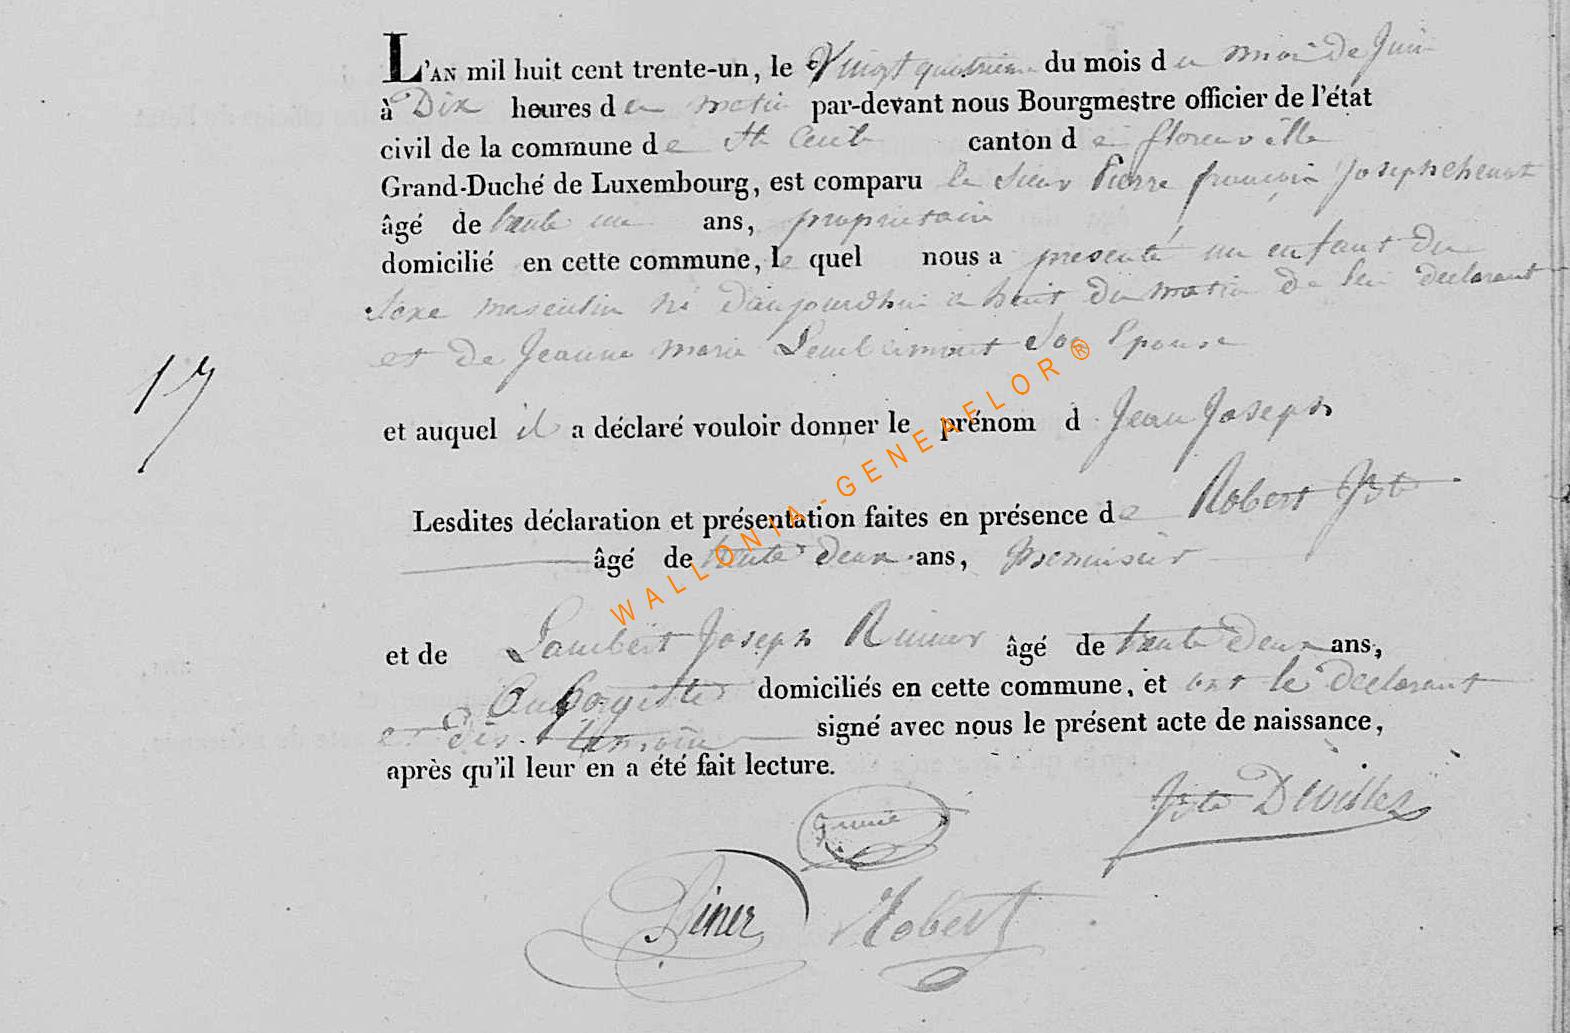 L'AN mil huit cent trente-un, le Vingt quatrieme du mois du mois de Juin
à Dix heures du matin par-devant nous Bourgmestre officier de l'état
civil de la commune de Ste Cecile canton de florenville
Grand-Duché de Luxembourg, est comparu le Sieur Pierre françois Joseph
âgé de trente un ans, proprietaire
domicilié en cette commune, le quel nous a presenté un enfant du
Sexe masculin né d'aujourdhui a huit du matin de lui declarant
et de Jeanne marie Son Epouse
17
et auquel il a déclaré vouloir donner le prénom d Jean Joseph
Lesdites déclaration et présentation faites en présence de Robert Jbte
âgé de trente deux ans,
et de Lambert Joseph âgé de trente deux ans,
Aubergiste domiciliés en cette commune, et ont le declarant
et dis. temoin signé avec nous le présent acte de naissance,
après qu'il leur en a été fait lecture.
Jbte
Riner Robert
WALLONIA-GENEAFLOR®